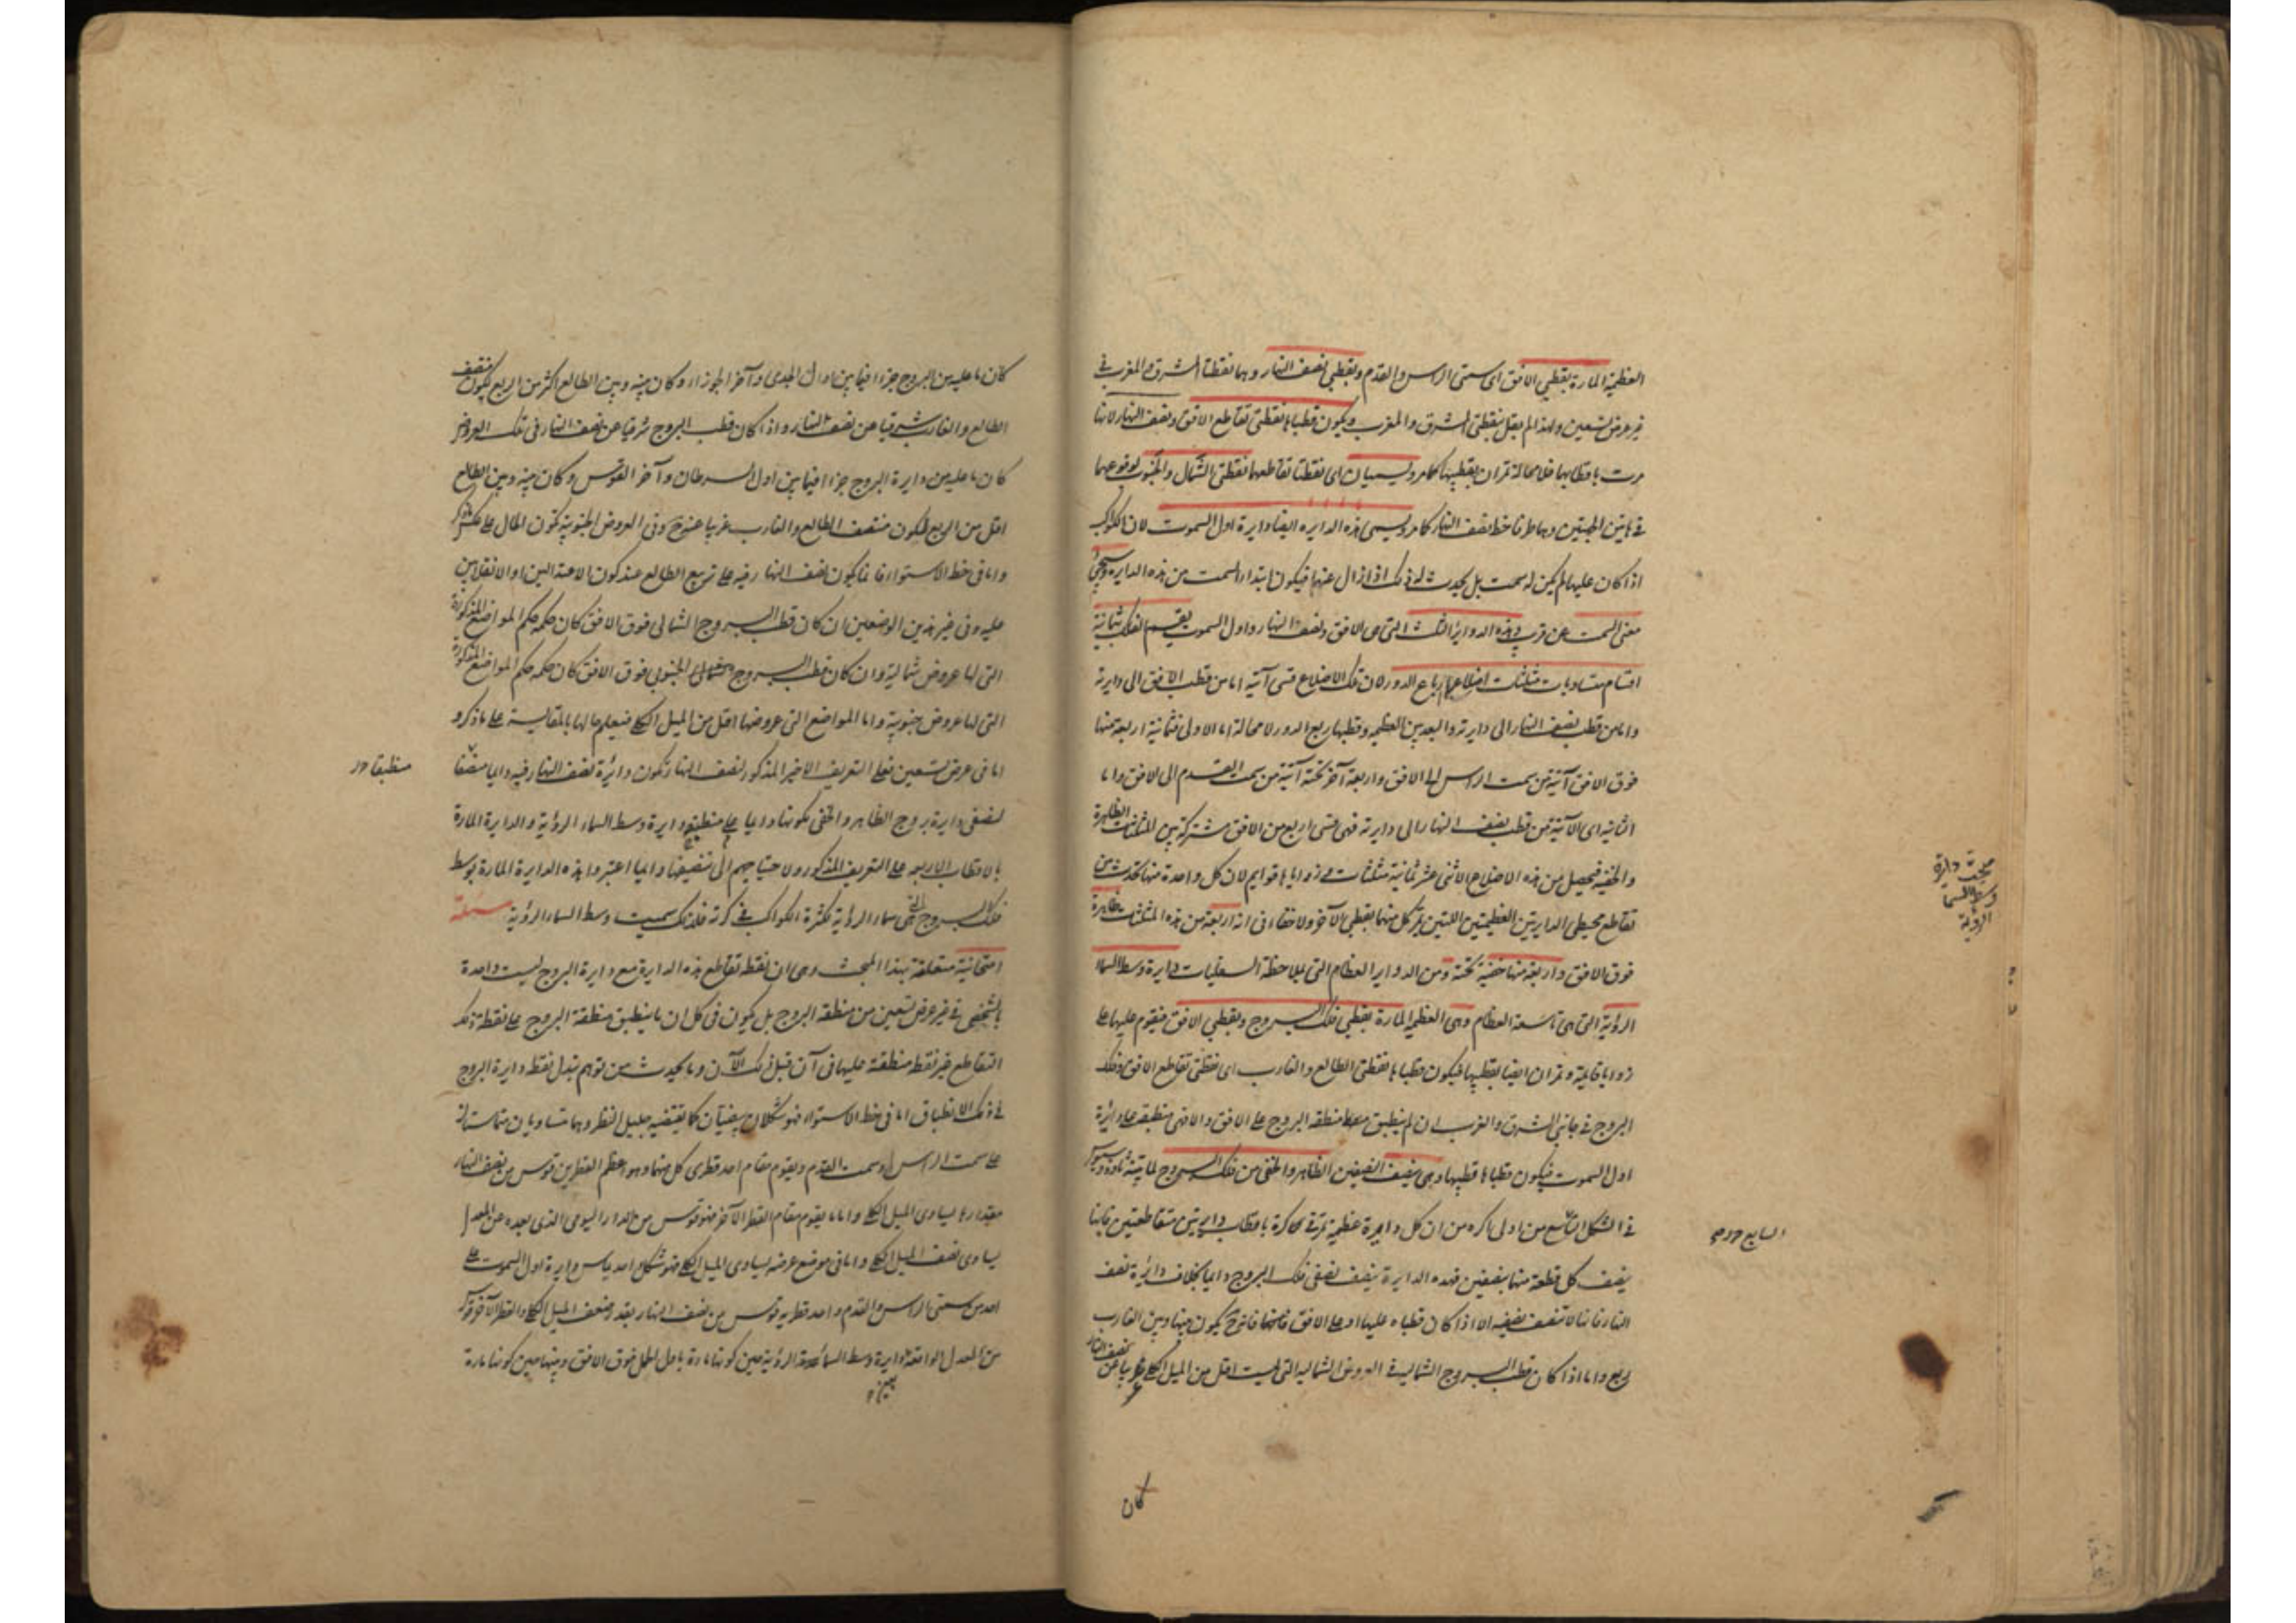 العظيمة المارة بقطبي الافق اى سمتى الراس والقدم وبقطبي نصف النهار وهما نقطتا المشرق والمغرب في
غير عرض تسعين ولهذا لم يقل بنقطتى المشرق والمغرب ويكون قطباها نقطتى تقاطع الافق ونصف النهار لانها
مرت باقطابها فلا محالة تمران بقطبيها كما مر ويسميان اى نقطتا تقاطعهما نقطتى الشمال والجنوب لوقوعهما
في هاتين الجهتين وهما طرفا خط نصف النهار كما مر ويسمى هذه الدايره ايضا دايرة اول السموت لان الكوكب
اذا كان عليها لم يكن له سمت بل يحدث له ذلك اذا زال عنها فيكون ابتداء السمت من هذه الدايره وسيجئ
معنى السمت عن قرب وهذه الدواير الثلث التى هى الافق ونصف النهار واول السموت يقسم الفلك بثمانية
اقسام متساويات مثلثات اضلاعها ارباع الدور لان تلك الاضلاع قسى آتية اما من قطب الافق الى دايرته
واما من قطب نصف النهار الى دايرته والبعد بين العظيمه وقطبها ربع الدور لا محالة اما الاولى فثمانية اربعة منها
فوق الافق آتية من سمت الراس الى الافق واربعة آخر تحته آتية من سمت القدم الى الافق واما
الثانيه اى الآتية من قطب نصف النهار الى دايرته فهى قسى اربع من الافق مشتركة بين المثلثات الظاهرة
والخفيه فيحصل من هذه الاضلاع الاثنى عشر ثمانية مثلثات زواياها قوايم لان كل واحدة منها تحدث من
تقاطع محيطى الدايرتين العظيمتين اللتين يمر كل منهما بقطبى الآخر ولا خفاء فى ان اربعة من هذه المثلثات ظاهرة
فوق الافق واربعة منها خفية تحته ومن الدواير العظام التى بملاحظة السفليات دايرة وسط السماء
الرؤية التى هى تاسعة العظام وهى العظيمة المارة بقطبي فلك البروج وبقطبي الافق فيقوم عليها على
زوايا قايمة وتمران ايضا بقطبيها فيكون قطباها نقطتى الطالع والغارب اى نقطتى تقاطع الافق وفلك
البروج في جانبي الشرق والغرب ان لم ينطبق منطقه البروج على الافق والا فهى منطبقة على دائرة
اول السموت فيكون قطباها قطبيها وهى ينصف النصفين الظاهر والخفى من فلك البروج لما بينه ثاوذوسيوس
في الشكل التاسع من اولى اكره من ان كل دايرة عظيمة تمر في كرة باقطاب دايرتين متقاطعتين فانها
ينصف كل قطعة منها بنصفين فهذه الدايرة ينصف نصفى فلك البروج دايما بخلاف دائرة نصف
النهار فانها لا تنصف نصفيه الا اذا كان قطباه عليها او على الافق فانها ح يكون بينها وبين الغارب
ربع واما اذا كان قطب البروج الشماليه في العروض الشماليه التى ليست اقل من الميل الكلى غربيا عن نصف النهار
كان
مبحث دايرة
وسط السما
الرؤية
السابع
كان ما عليه من البروج جزءا فيما بين اول الجدى وآخر الجوزاء وكان بينه وبين الطالع اكثر من الربع فيكون منتصف
الطالع والغارب شرقيا عن نصف النهار واذا كان قطب البروج شرقيا عن نصف النهار فى تلك العروض
كان ما عليه من دايرة البروج جزءا فيما بين اول السرطان وآخر القوس وكان بينه وبين الطالع
اقل من الربع فيكون منتصف الطالع والغارب غربيا عنه وفى العروض الجنوبية تكون الحال على عكس
واما فى خط الاستواء فانما يكون نصف النهار فيه على تربيع الطالع عند كون الاعتدالين او الانقلابين
عليه وفى غير هذين الوضعين ان كان قطب البروج الشمالى فوق الافق كان حكمه حكم المواضع المذكورة
التى لها عروض شمالية وان كان قطب البروج الجنوبى فوق الافق كان حكمه حكم المواضع المذكورة
التى لها عروض جنوبية واما المواضع التى عروضها اقل من الميل الكلى فيعلم حالها بالمقايسة على ما ذكر و
اما فى عرض تسعين فعلى التعريف الاخير المذكور لنصف النهار تكون دائرة نصف النهار فيه دايما منصفا
لنصفى دايرة بروج الظاهر والخفى بكونها دايما منطبقة دايرة وسط السماء الرؤية والدايرة المارة
بالاقطاب الاربعه على التعريف المذكور ولاحتياجهم الى تنصيفها دايما اعتبروا هذه الدايرة المارة بوسط
فلك البروج التى هى سماء الرؤية لكثرة الكواكب في كرته فلذلك سميت وسط السماء الرؤية
امتحانية متعلقة بهذا المبحث وهى ان نقطه تقاطع هذه الدايرة مع دايرة البروج ليست واحدة
بالشخص في غير عرض تسعين من منطقه البروج بل يكون فى كل ان ما ينطبق منطقة البروج على نقطة تلك
التقاطع غير نقطه منطقة عليها فى آن قبل ذلك الآن وما يحدث من توهم تبدل نقطه دايرة البروج
في ذلك الانطباق اما فى خط الاستواء فهو شكلان بيضيان كما يقتضيه جليل النظر وهما متساويان متماستان
على سمت الراس وسمت القدم ويقوم مقام احد قطرى كل منهما وهو اعظم القطرين قوس من نصف النهار
مقدارها يساوى الميل الكلى واما ما يقوم مقام القطر الآخر فهو قوس من المدار اليومى الذى بعده عن المعدل
يساوى نصف الميل الكلى واما فى موضع عرضه يساوى الميل الكلى فهو شكل واحد يماس دايرة اول السموت على
احد من سمتى الراس والقدم واحد قطريه قوس من نصف النهار بقدر ضعف الميل الكلى والقطر الآخر قوس
من المعدل الواقعة دايرة وسط السماء الرؤية حين كونها مارة باول الحمل فوق الافق وبينها حين كونها مارة
بين
منطبقا